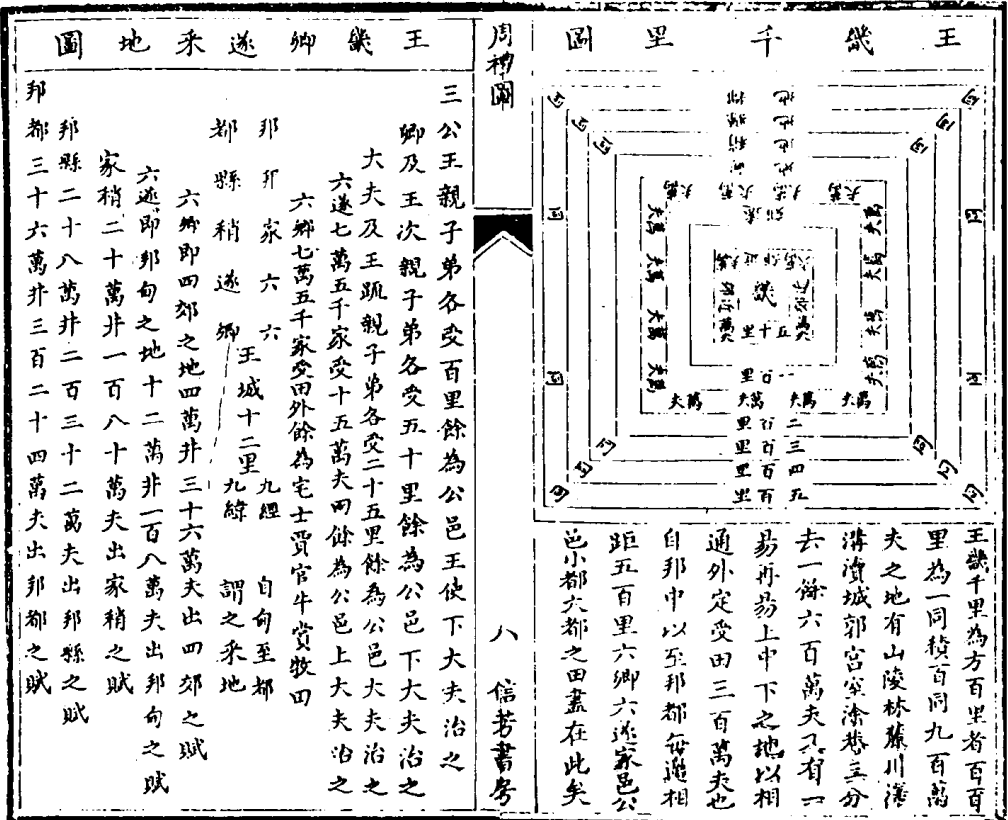 王畿千里圖
幾
五十里
一百里
二百里
三百里
四百里
五百里
萬夫
萬夫
萬夫
萬夫
王畿千里為方百里者百百
里為一同積百同九百萬
夫之地有山陵林麓川澤
溝瀆城郭宮室涂巷三分
去一餘六百萬夫又有一
易再易上中下之地以相
通外定受田三百萬夫也
自邦中以至邦都每邊相
距五百里六鄉六遂家邑公
邑小都大都之田盡在此矣
周禮圖
八
信芳書房
王畿鄉遂采地圖
三公王親子弟各受百里餘為公邑王使下大夫治之
卿及王次親子弟各受五十里餘為公邑下大夫治之
大夫及王疏親子弟各受二十五里餘為公邑大夫治之
六遂七萬五千家受十五萬夫田餘為公邑上大夫治之
六鄉七萬五千家受田外餘為宅士賈官牛賞牧田
邦邦家六六
王城十二里
九經
自甸至都
都縣稍遂鄉
九緯
謂之采地
六鄉即四郊之地四萬井三十六萬夫出四郊之賦
六遂即邦甸之地十二萬井一百八萬夫出邦甸之賦
家稍二十萬井一百八十萬夫出家稍之賦
邦縣二十八萬井二百三十二萬夫出邦縣之賦
邦都三十六萬井三百二十四萬夫出邦都之賦